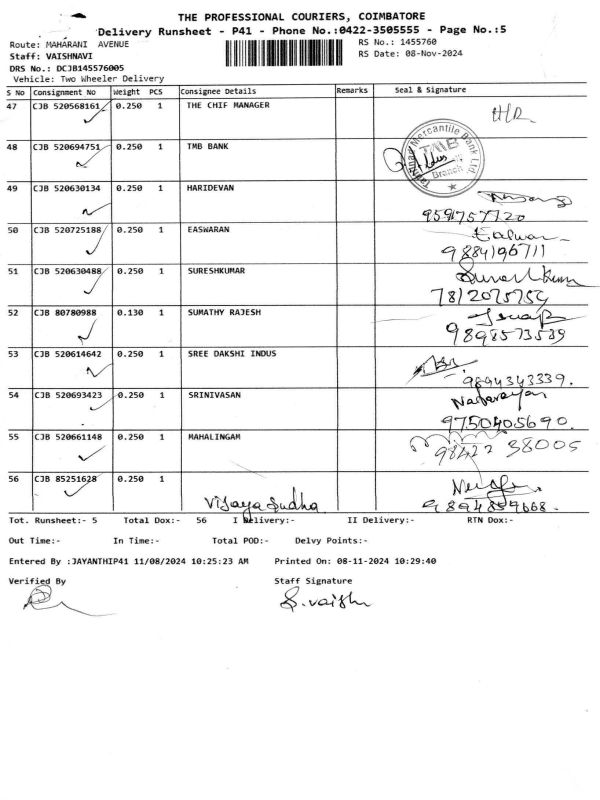 THE PROFESSIONAL COURIERS, COIMBATORE
Delivery Runsheet - P41 - Phone No.:0422-3505555 - Page No.:5
Route: MAHARANI AVENUE RS No.: 1455760
Staff: VAISHNAVI RS Date: 08-Nov-2024
DRS No.: DCJB145576005
Vehicle: Two Wheeler Delivery
S No Consignment No Weight PCS Consignee Details Remarks Seal & Signature
47 CJB 520568161 0.250 1 THE CHIF MANAGER
48 CJB 520694751 0.250 1 TMB BANK
Tamilnad Mercantile Bank Ltd.
TMB
Branch
49 CJB 520630134 0.250 1 HARIDEVAN
9597577720
50 CJB 520725188 0.250 1 EASWARAN
9884196711
51 CJB 520630488 0.250 1 SURESHKUMAR Suresh Kumar
7812075754
52 CJB 80780988 0.130 1 SUMATHY RAJESH
9898573539
53 CJB 520614642 0.250 1 SREE DAKSHI INDUS
9894343339.
54 CJB 520693423 0.250 1 SRINIVASAN Natarayan
9750405690.
55 CJB 520661148 0.250 1 MAHALINGAM
98422 38005
56 CJB 85251628 0.250 1
Vijaya Sudha 9894859668.
Tot. Runsheet:- 5 Total Dox:- 56 I Delivery:- II Delivery:- RTN Dox:-
Out Time:- In Time:- Total POD:- Delvy Points:-
Entered By :JAYANTHIP41 11/08/2024 10:25:23 AM Printed On: 08-11-2024 10:29:40
Verified By Staff Signature
S. vaish